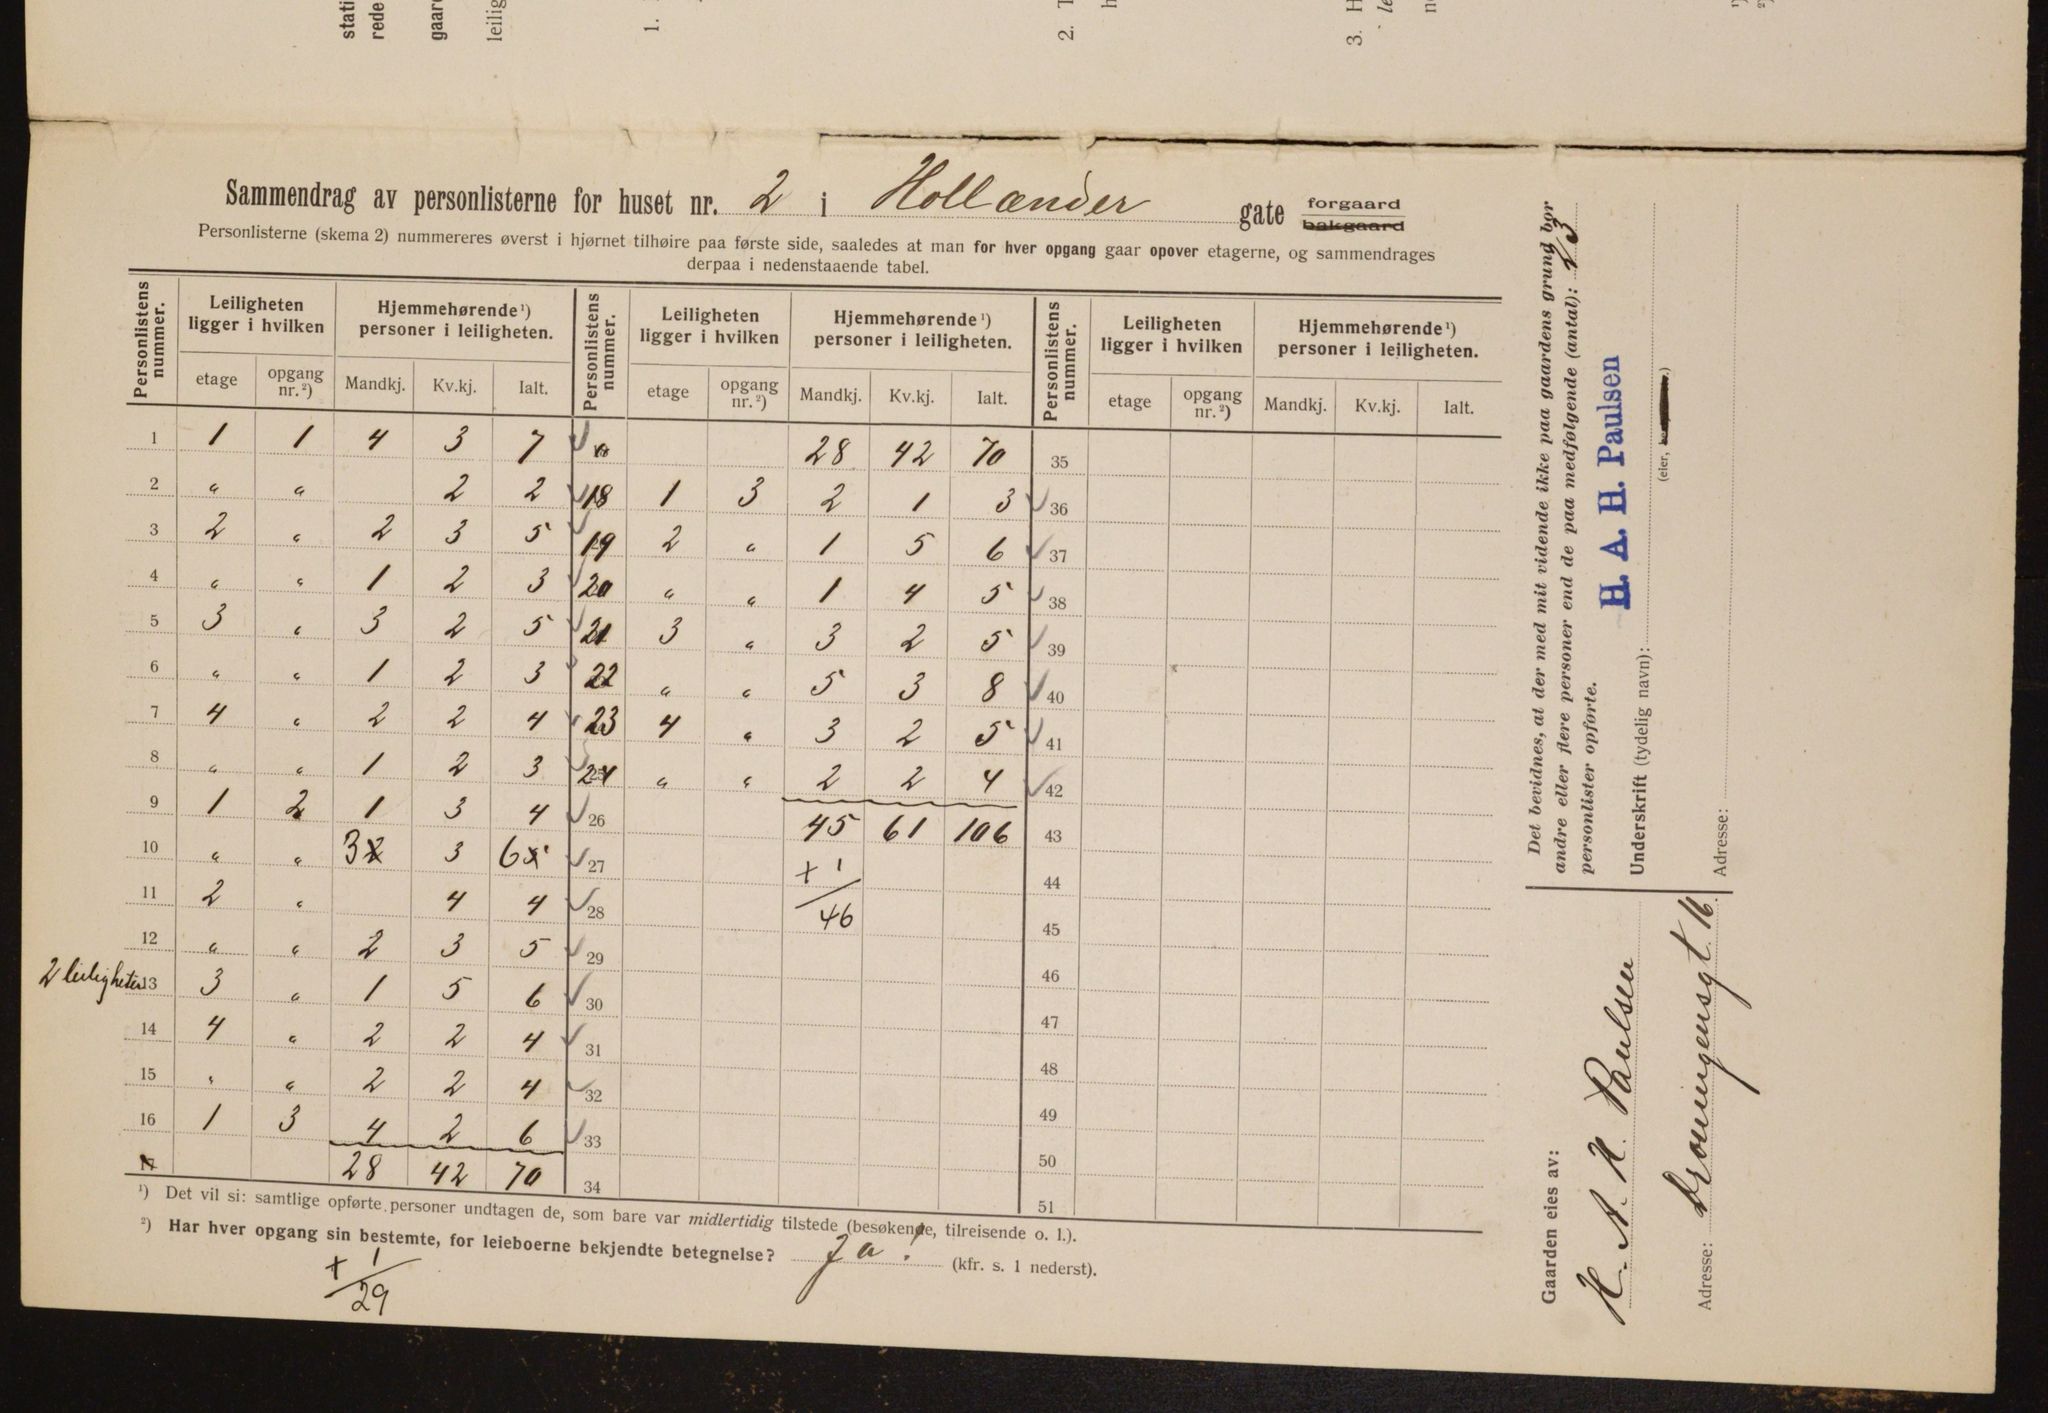 stati
rede
gaard
leilig
1.
2. T
h
3. H
le
n
1)
2)
Sammendrag av personlisterne for huset nr. 2 i Hollænder gate forgaard bakgaard
Personlisterne (skema 2) nummereres øverst i hjørnet tilhøire paa første side, saaledes at man for hver opgang gaar opover etagerne, og sammendrages
derpaa i nedenstaaende tabel.
Personlistens nummer. | Leiligheten ligger i hvilken | Hjemmehørende ¹) personer i leiligheten. | Personlistens nummer. | Leiligheten ligger i hvilken | Hjemmehørende ¹) personer i leiligheten. | Personlistens nummer. | Leiligheten ligger i hvilken | Hjemmehørende ¹) personer i leiligheten.
etage | opgang nr. ²) | Mandkj. | Kv.kj. | Ialt. | etage | opgang nr. ²) | Mandkj. | Kv.kj. | Ialt. | etage | opgang nr. ²) | Mandkj. | Kv.kj. | Ialt.
1 1 1 4 3 7 28 42 70 35
2 " " 2 2 18 1 3 2 1 3 36
3 2 " 2 3 5 19 2 " 1 5 6 37
4 " " 1 2 3 20 " " 1 4 5 38
5 3 " 3 2 5 21 3 " 3 2 5 39
6 " " 1 2 3 22 " " 5 3 8 40
7 4 " 2 2 4 23 4 " 3 2 5 41
8 " " 1 2 3 24 " " 2 2 4 42
9 1 2 1 3 4 26 45 61 106 43
10 " " 3 2 3 6 5 27 + 1 44
11 2 " 4 4 28 46 45
12 " " 2 3 5 29 46
2 leiligheter 13 3 " 1 5 6 30 47
14 4 " 2 2 4 31 48
15 " " 2 2 4 32 49
16 1 3 4 2 6 33 50
17 28 42 70 34 51
¹) Det vil si: samtlige opførte personer undtagen de, som bare var midlertidig tilstede (besøkende, tilreisende o. l.).
²) Har hver opgang sin bestemte, for leieboerne bekjendte betegnelse? Ja! (kfr. s. 1 nederst).
+ 1
29
Det bevidnes, at der med mit vidende ikke paa gaardens grund bor
andre eller flere personer end de paa medfølgende (antal): 23
personlister opførte.
H. A. H. Paulsen
Underskrift (tydelig navn):
(eier, )
Adresse:
Gaarden eies av:
H. A. H. Paulsen
Adresse: Dronningensgt. 16.